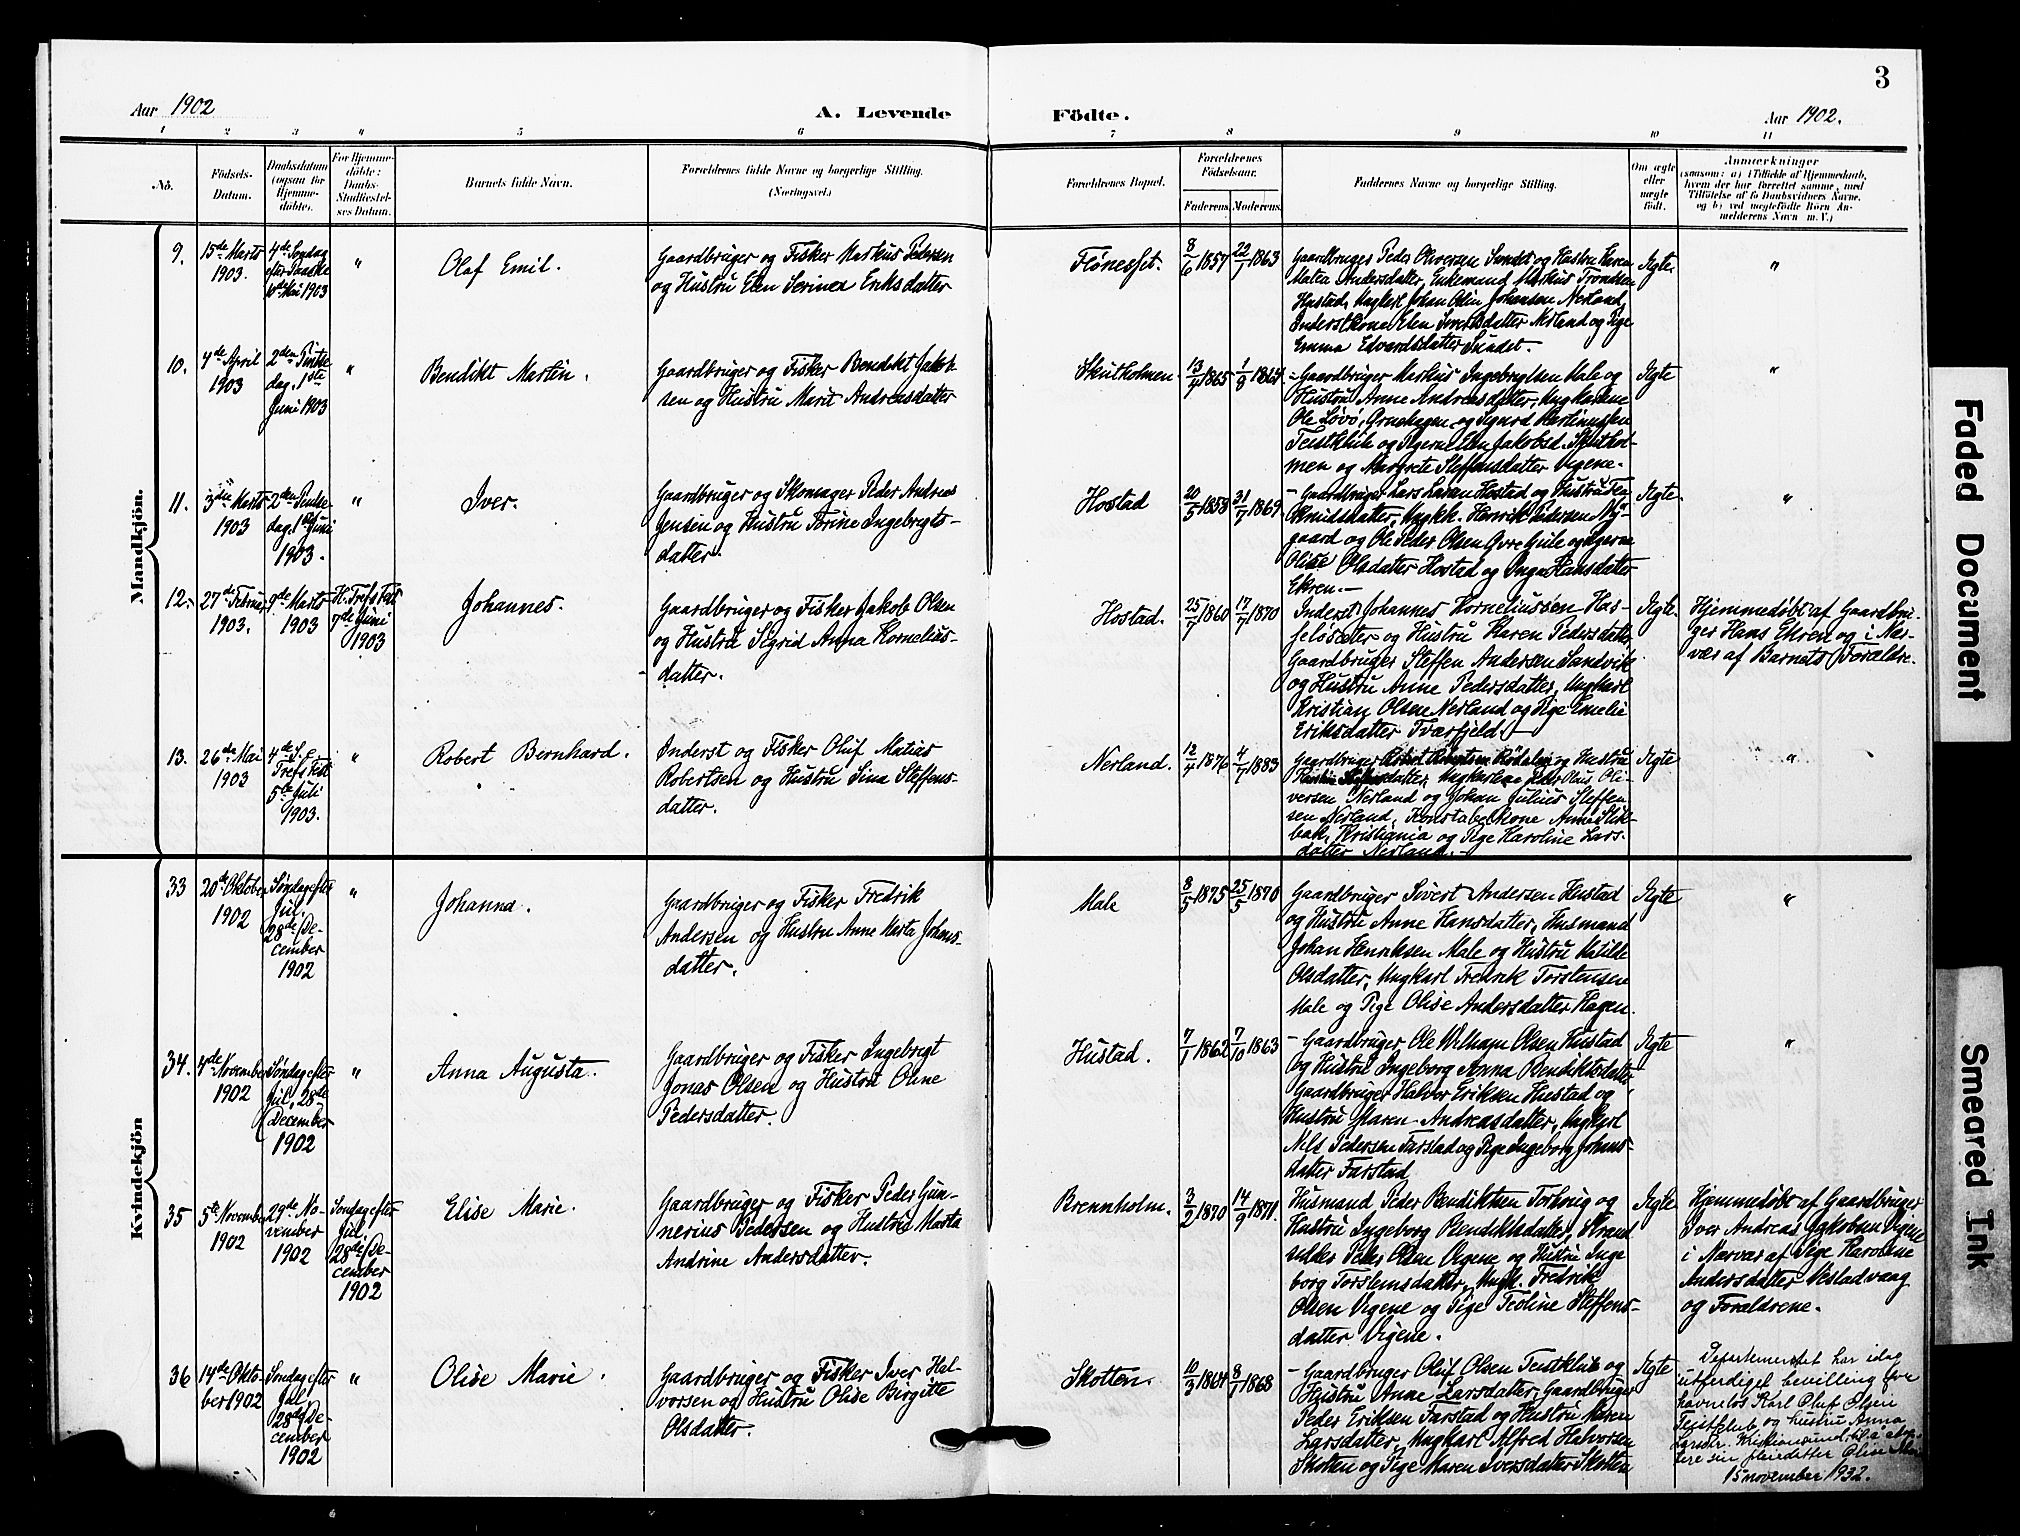 3
Aar 1902
A. Levende
Födte.
Aar 1902.
1 2 3 4 5 6 7 8 9 10 11
No.
Födsels-
Datum.
Daabsdatum
(ogsaa for
Hjemme-
döbte).
For Hjemme-
döbte:
Daabs-
Stadfæstel-
ses Datum.
Barnets fulde Navn.
Forældrenes fulde Navne og borgerlige Stilling.
(Næringsvei.)
Forældrenes Bopæl.
Forældrenes
Födselsaar.
Faderens.
Moderens.
Faddernes Navne og borgerlige Stilling.
Om ægte
eller
uægte
födt.
Anmærkninger
(saasom: a) i Tilfælde af Hjemmedaab,
hvem der har forrettet samme, med
Tilföielse af to Daabsvidners Navne,
og b) ved uægtefödte Börn An-
melderens Navn m. V.)
Mandkjön.
9.
15de Marts
1903.
4de Søndag
efter Paaske
10de Mai 1903
"
Olaf Emil.
Gaardbruger og Fisker Markus Pedersen
og Hustru Elen Serine Eriksdatter
Flønesset.
8/6 1857
22/1 1863
Gaardbruger Peder Oliversen Sandet og Hustru Karen
Matea Andersdatter, Enkemand Markus Trondsen
Hustad, Ungkarl Johan Olin Johansen Nerland,
Inderstkone Elen Sivertsdatter Nerland og Pige
Emma Edvardsdatter Sandet.
Ægte
"
10.
4de April
1903
2den Pintse
dag. 1ste
Juni 1903
"
Bendikt Martin.
Gaardbruger og Fisker Bendikt Jakob-
sen og Hustru Marit Andreasdatter
Skutholmen
13/4 1865
1/8
- Gaardbruger Markus Ingebrigtsen Male og
Hustru Anne Andreasdatter, Ungkarlene
Ole Løvø, Grushagen og Sigurd Martinussen
Teistklub og Pigerne Elen Jakobsd. Skuthol-
men og Margrete Steffensdatter Vigene.
Ægte
"
11.
3die Marts
1903
2den Pintse-
dag. 1ste Juni
1903.
"
Iver.
Gaardbruger og Skomager Peder Andreas
Jensen og Hustru Torine Ingebrigts-
datter.
Hostad
20/5 1858
31/7 1869
- Gaardbruger Lars Larsen Hostad og Hustru
Knudsdatter, Ungk. Henrik Pedersen Ny-
gaard og Ole Peder Olsen Øvre Gule og Pigerne
Olise Olsdatter Hostad og Inga Hansdatter
Ekren.-
Ægte.
"
12.
27de Februar
1903.
9de Marts
1903
H. Trefs Fest
7de Juni
1903
Johannes.
Gaardbruger og Fisker Jakob Olsen
og Hustru Sigrid Anna Kornelius-
datter.
Hostad.
25/7 1860
17/7 1870
Inderst Johannes Korneliussen Has-
seløsæter og Hustru Karen Pedersdatter,
Gaardbruger Steffen Andersen Sandvik
og Hustru Anne Pedersdatter, Ungkarl
Kristian Olsen Nerland og Pige Emelie
Eriksdatter Tværfjeld.-
Ægte.
Hjemmedøbt af Gaardbru-
ger Hans Ekren og i Nær-
vær af Barnets Forældre.
13.
26de Mai
1903
4de S. e.
Trefs Fest
5te Juli
1903.
"
Robert Bernhard.
Inderst og Fisker Oluf Matias
Robertsen og Hustru Sina Steffens-
datter.
Nerland.
12/4 1876
4/7 1883
Gaardbruger Robert og Hustru
datter, Ungkarlene Peder Olaus Oli-
versen Nerland og Johan Julius Steffen-
sen Nerland, Konstabelkone Anne Slet-
bak, Kristiania og Pige Karoline Lars-
datter Nerland.-
Ægte
"
Kvindekjön
33
20de Oktober
1902
Søndag efter
Jul.
28de De-
cember
1902
"
Johanna.
Gaardbruger og Fisker Fredrik
Andersen og Hustru Anne Marta Johans-
datter.
Male
8/5 1875
25/5 1870
Gaardbruger Sivert Andersen Hustad
og Hustru Anne Hansdatter, Husmand
Johan Henriksen Male og Hustru Matilde
Olsdatter, Ungkarl Fredrik Torstensen
Male og Pige Olise Andersdatter Hagen.
Ægte
"
34.
4de November
1902
Søndag efter
Jul, 28de
December
1902
"
Anna Augusta.
Gaardbruger og Fisker Ingebrigt
Jonas Olsen og Hustru Oline
Pedersdatter.
Hustad.
7/1 1862
7/10 1863
- Gaardbruger Ole Wilhelm Olsen Hustad
og Hustru Ingeborg Anna Bendiktsdatter
Gaardbruger Halvor Eriksen Hustad og
Hustru Maren Andreasdatter, Ungkarl
Nils Pedersen Farstad og Pige Ingeborg Johans-
datter Farstad
Ægte
"
35
5te November
1902
29de No-
vember
1902
Søndag efter
Jul,
28de De-
cember
1902
Elise Marie.
Gaardbruger og Fisker Peder Gun-
nerius Pedersen og Hustru Marta
Andrine Andersdatter.
Brennholm.
3/2 1870
14/9 1871.
Husmand Peder Bendiktsen Torhoug og
Hustru Ingeborg Bendiktsdatter, Strand-
sidder Peder Olsen Vigene og Hustru Inge-
borg Torstensdatter, Ungk. Fredrik
Olsen Vigene og Pige Teoline Steffens-
datter Vigene.
Ægte
Hjemmedøbt af Gaardbruger
Iver Andreas Jakobsen Vigene
i Nærvær af Pige Karoline
Andersdatter Vestadvaag
og Forældrene.
36
14de Okto-
ber 1902
Søndag efter
Jul,
28de De-
cember
1902
"
Olise Marie.
Gaardbruger og Fisker Iver Hal-
vorsen og Hustru Olise Birgitte
Olsdatter.
Skotten.
10/3 1864
8/1 1868
- Gaardbruger Oluf Olsen Teistklub og
Hustru Anne Larsdatter, Gaardbruger
Peder Eriksen Farstad og Hustru Maren
Larsdatter, Ungkarl Alfred Halvorsen
Skotten og Pige Maren Iversdatter Skotten
Ægte
Departementet har idag
utferdiget bevilling for
havnelos Karl Oluf Olsen
Teistklub og hustru Anna
Larsdr. Kristiansund til å adop-
tere sin pleiedatter Olise Marie
15 november 1932.
Faded Document
Smeared Ink